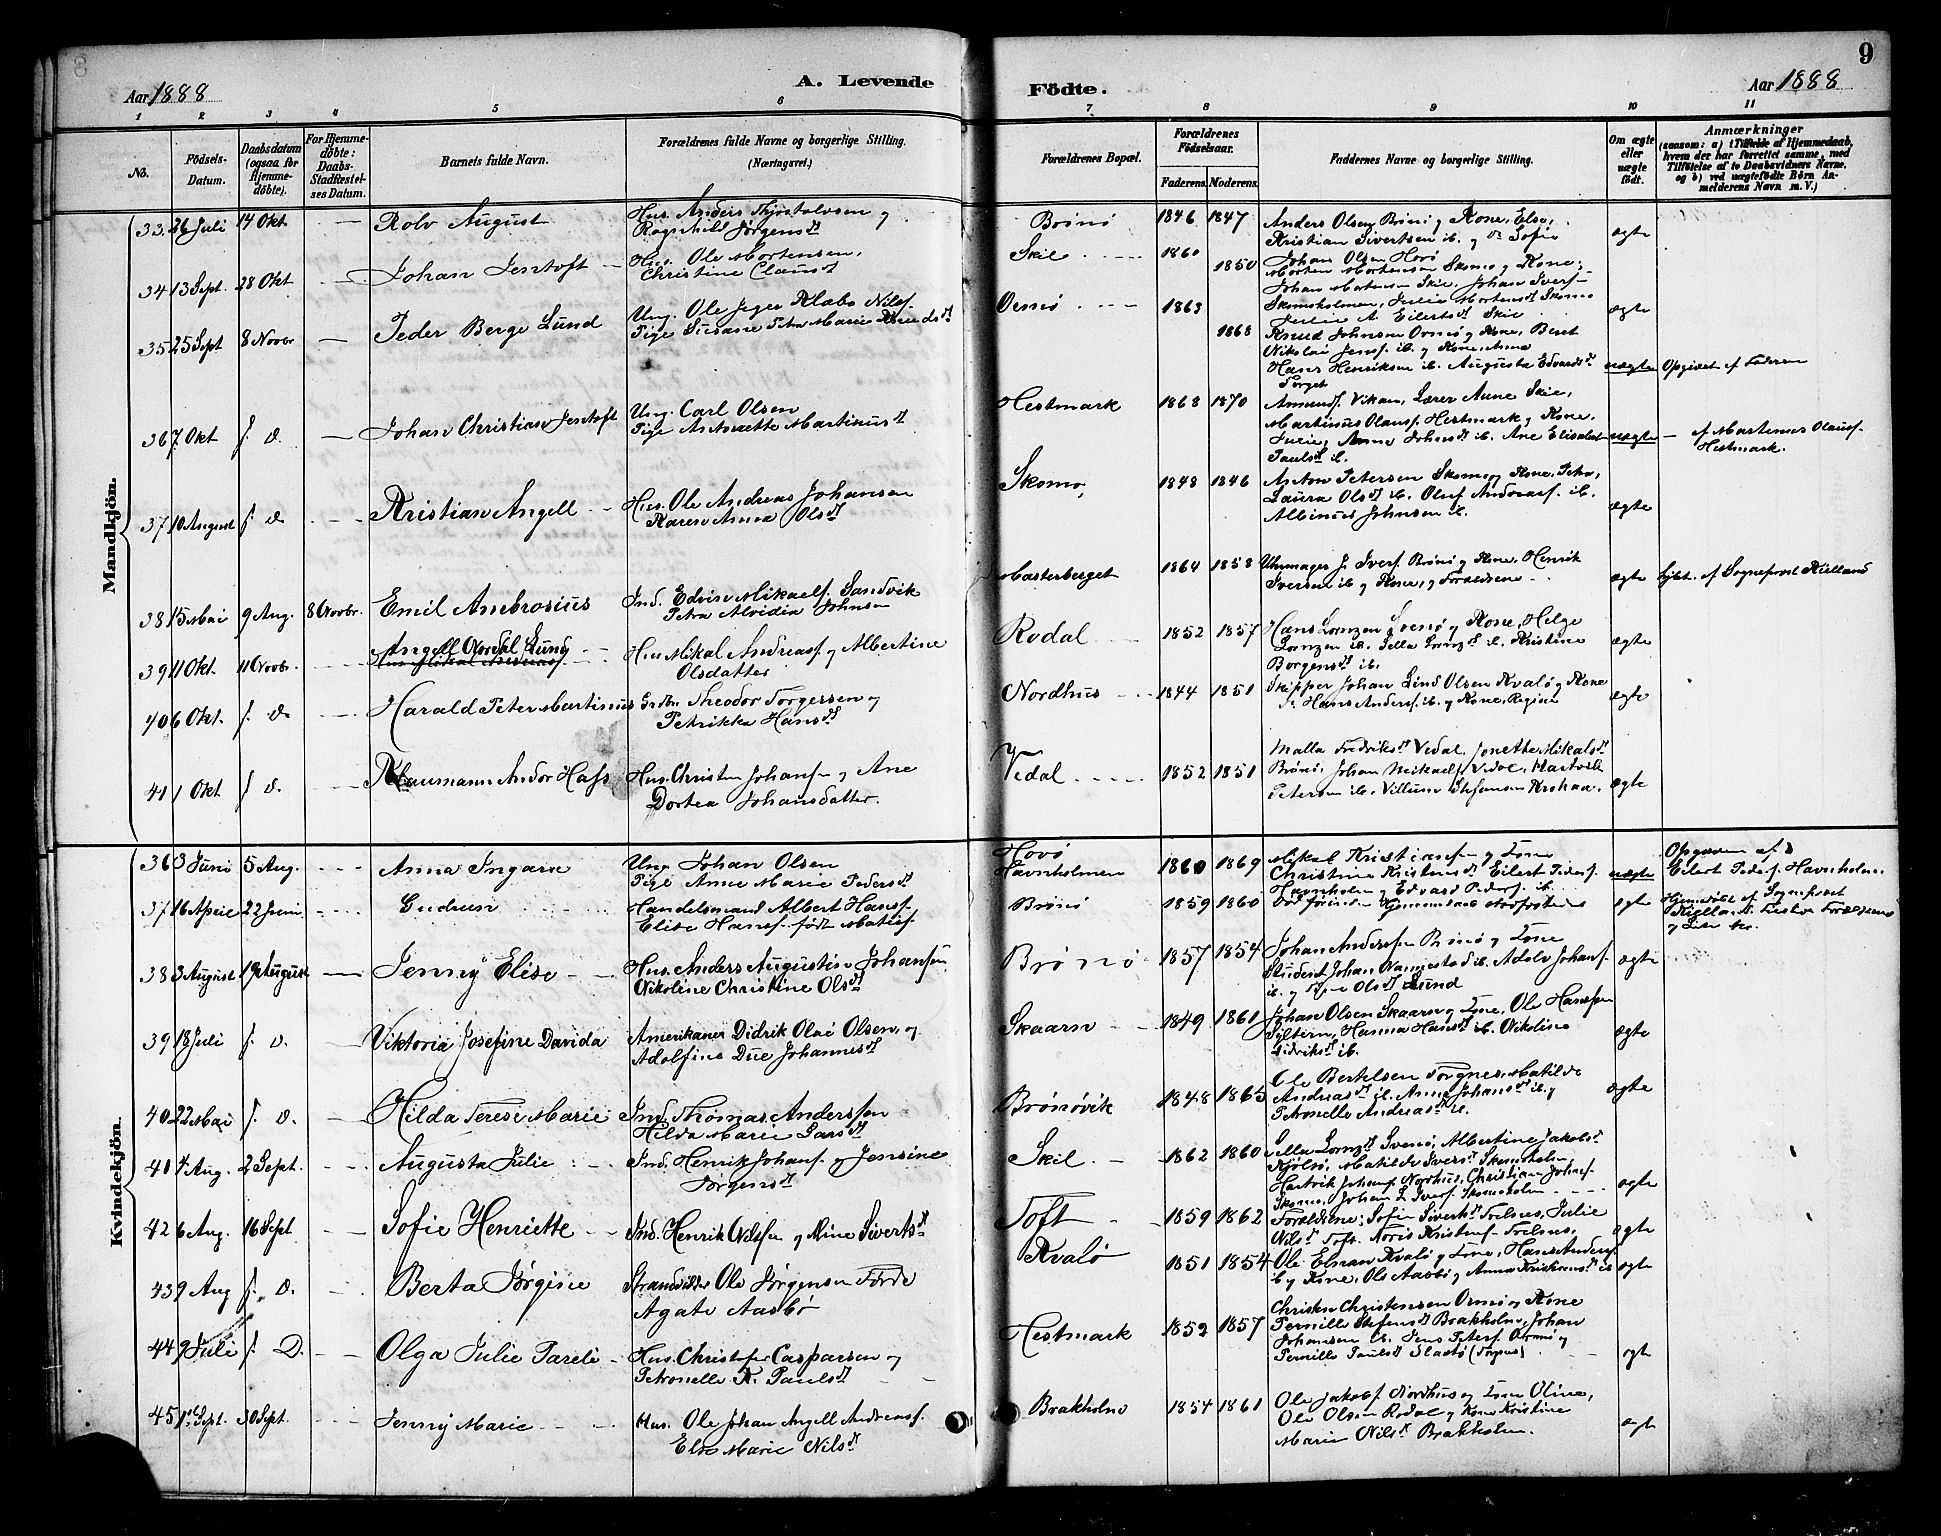 8
9
Aar 1888
A. Levende
Födte.
Aar 1888
1 2 3 4 5 6 7 8 9 10 11
No.
Födsels-Datum.
Daabsdatum (ogsaa for Hjemme-döbte).
For Hjemme-döbte: Daabs-Stadfæstel-ses Datum.
Barnets fulde Navn.
Forældrenes fulde Navne og borgerlige Stilling. (Næringsvei.)
Forældrenes Bopæl.
Forældrenes Födselsaar.
Faderens. Moderens.
Faddernes Navne og borgerlige Stilling.
Om ægte eller uægte födt.
Anmærkninger
(saasom: a) i Tilfælde af Hjemmedaab, hvem der har forrettet samme, med Tilföielse af to Daabsvidners Navne, og b) ved uægtefödte Börn An-melderens Navn m. V.)
Mandkjön.
33 26 Juli 14 Okt — Rolv August
Hus. Anders Thjostolvsen og
Ragnhild Jörgensd
Brönö 1846 1847
Anders Olsen Brönö og Kone, Else,
Kristian Sivertsen ib. og Sofie
ægte
34 13 Sept. 28 Okt — Johan Jentoft
Hus. Ole Mortensen,
Christine Clausd
Skil 1860 1850
Johan Olsen Horö
Morten Mortensen Skomo og Kone,
Johan Mortensen Skie, Johan Iversf
Skomsholmen, Julie Mortensd Skomo
Eilertsd Skie
ægte
35 25 Sept 8 Novbr — Peder Berge Lund
Ung. Ole Jeger Klabo Nilsf.
Pige Susane Petra Marie Knudsd
Ormö 1863 1868
Knud Johnsen Ormö og Kone, Beret
Nikolai Jensf. ib. og Kone, Anna
Hans Henriksen ib. Augusta Edvardsd
Torget
uægte Opgivet af Faderen
36 7 Okt f. d. — Johan Christian Jentoft
Ung. Carl Olsen
Pige Antonette Martinusd
Hestmark 1868 1870
Amundf. Vikan, Lærer Aune Skie,
Martinus Olausf. Hestmark og Kone,
Julie, Anne Johnsd ib. Ane Elisabet
Paulsd ib.
uægte — af Martinus Olausf.
Hestmark.
37 10 August f. d. — Kristian Angell
Hus. Ole Andreas Johansen
Karen Anna Olsd
Skomo, 1848 1846
Anton Petersen Skomo og Kone, Petra,
Laura Olsd ib. Oluf Andreasf. ib.
Albinus Johnsen ib.
ægte
38 15 Mai 9 Aug. 8 Novbr. Emil Ambrosius
Ind. Edvin Mikaelf. Sandvik
Petra Alvidia Johnsen
Mosterberget 1864 1858
Uhrmager J. Iversf. Brönö og Kone, Henrik
Iversen ib og Kone, og Forældrene
ægte hjdt. af Sogneprest Kielland
39 11 Okt. 11 Novbr. Angell Nordal Lund
Hus Mikal Andreasf.
Hus Mikal Andreasf. og Albertine
Olsdatter
Rodal 1852 1857
Hans Lornzen Svenö og Kone, Helge
Lornzen ib. Pella Lornzd ib. Kristine
Borgensd ib.
ægte
40 6 Okt. f. d. Harald Peter Martinus
Theodor Torgersen og
Petrikke Hansd
Nordhus 1844 1851
Skipper Johan Lind Olsen Kvalö og Kone
Hans Andersf. ib. og Kone, Regine
ægte
41 1 Okt f. d. — Klaumann Andor Hass
Hus. Christen Johansen og Ane
Dortea Johansdatter.
Vedal 1852 1851
Malla Fredriksd Vedal, Jonette Mikalsd
Brönö, Johan Mikaelf. Vedal, Hartvik
Petersen ib. Villum Krokaa.
ægte
Kvindekjön.
36 3 Juni 5 Aug. Anna Ingara
Ung. Johan Olsen
Pige Anne Marie Pedersd
Horö
Havnholmen 1860 1869
Mikal Kristiansen og Kone
Christine Kristensd Eilert Pedersf.
Havnholm og Edvard Pedersf. ib.
uægte Opgiven af
Eilert Pedersf. Havnholm.
37 16 April 22 Juni Gudrun
Handelsmand Albert Hansf.
Elise Hansf. født Mathisf.
Brönö 1859 1860
ægte Hjemedöbt af Sognprest
Kielland. Forældrene
38 3 August 19 August — Jenny Elise
Hus. Anders Augustin Johansen
Nikoline Christine Olsd
Brönö 1857 1854
Johan Anderssen Brönö og Kone
Student Johan Wannestad ib. Adolv Johansf.
ib. og Olsd Lund
ægte
39 18 Juli f. d. Viktoria Josefine Davida
Amerikaner Didrik Olai Olsen, og
Adolfine Due Johannesd
Skaarn 1849 1861
Johan Olsen Skaarn og Kone, Ole Hanssen
Tiltern, Hanna Hansd ib. Nikoline
Didriksd ib.
ægte
40 22 Mai f. d. — Hilda Terese Marie
Ind. Thomas Anderssen
Hilda Marie Larsd
Brönövik 1848 1865
Ole Bertelsen Torgnes, Matilde
Andreasd ib. Anne Johansd ib. og
Petronelle Andreasd ib.
ægte
41 Aug. 2 Sept. Augusta Julie
Ind. Henrik Johansf. og Jensine
Jörgensd
Skil 1862 1860
Pella Lornzd Svenö, Albertine Jakobsd
Kjölsö, Matilde Iversd Skomsholm,
Hartvik Johansf. Nordhus, Christian Johnsf.
Skomo, Johan L. Iversf. Skomsholm
ægte
42 6 Aug. 16 Sept Sofie Henriette
Ind. Henrik Nilsen og Aline Sivertsd
Toft 1859 1862
Forældrene, Sofie Sivertsd Trelnes, Julie
Nilsd Toft. Kristenf. Trelnes,
ægte
43 9 Aug f. d. Berta Jörgine
Strandsidder Ole Jörgensen Förde
Agate Aasbö
Kvalö 1851 1854
Ole Elman Kvalö og Kone, Hans Andersf.
ib og Kone, Ole Aasbö og Anna Kristensd ib
ægte
44 9 Juli f. D. Olga Julie Pareli
Hus. Christofer Caspersen og
Petronelle K. Paulsd
Hestmark 1852 1857
Christen Christensen Ormö og Kone
Pernille Stefensd Brakholm, Johan
Johansen ib. Jens Petersf. Ormö og
Pernille Paulsd Slastö (Torgnes)
ægte
45 1 Sept. 30 Sept. Jenny Marie
Hus. Ole Johan Angell Andreasf.
Else Marie Nilsd
Brakholm 1854 1861
Ole Jakobf. Nordhus og Kone Oline,
Ole Olsen Rodal og Kone Kristine
Marie Nilsd Brakholm.
ægte